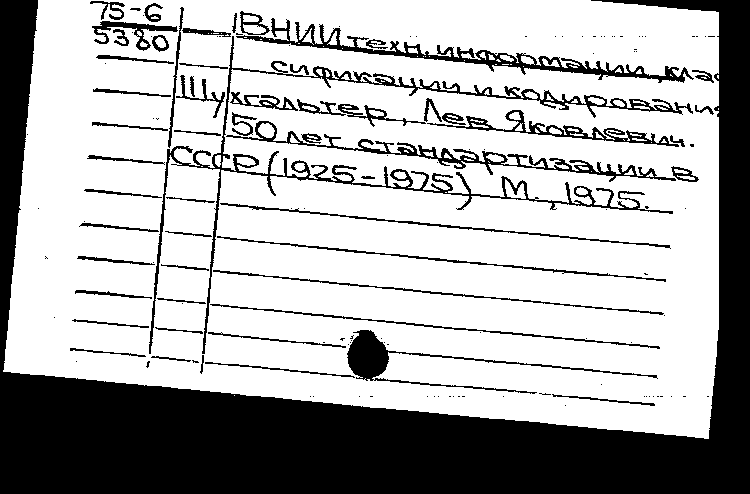 75-6
5380
ВНИИ техн. информации, клас
сификации и кодирования
Шухгальтер, Лев Яковлевич.
50 лет стандартизации в
СССР (1925-1975) М., 1975.